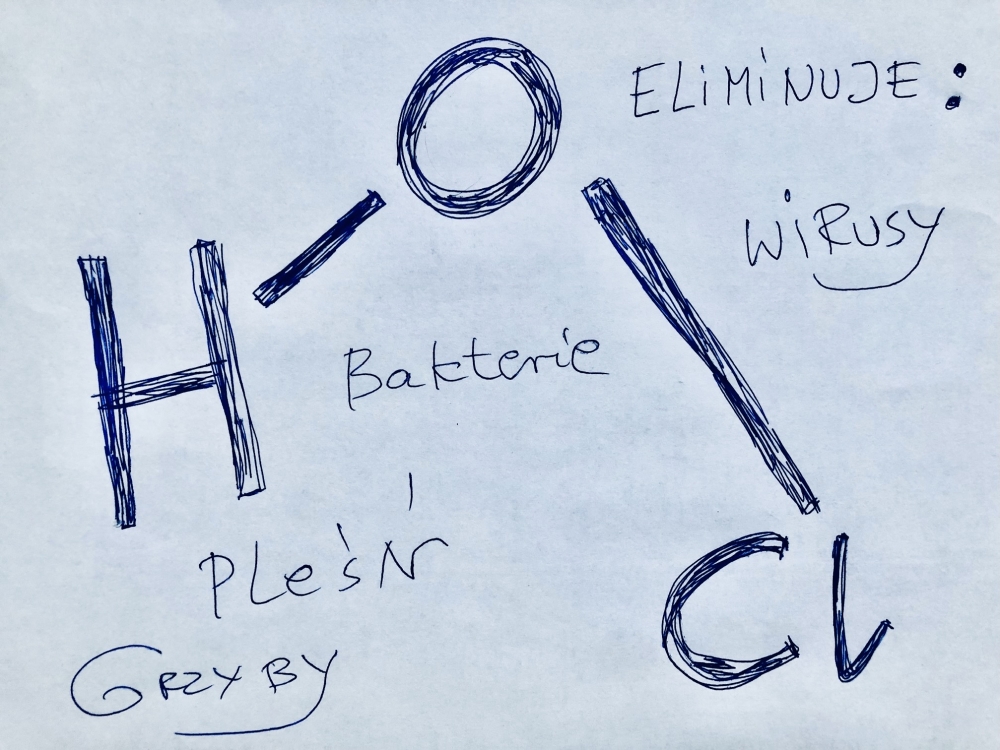 O
ELiMiNUJE:
WiRUSY
H
Bakterie
PLeśŃ
Cl
GRZYBY